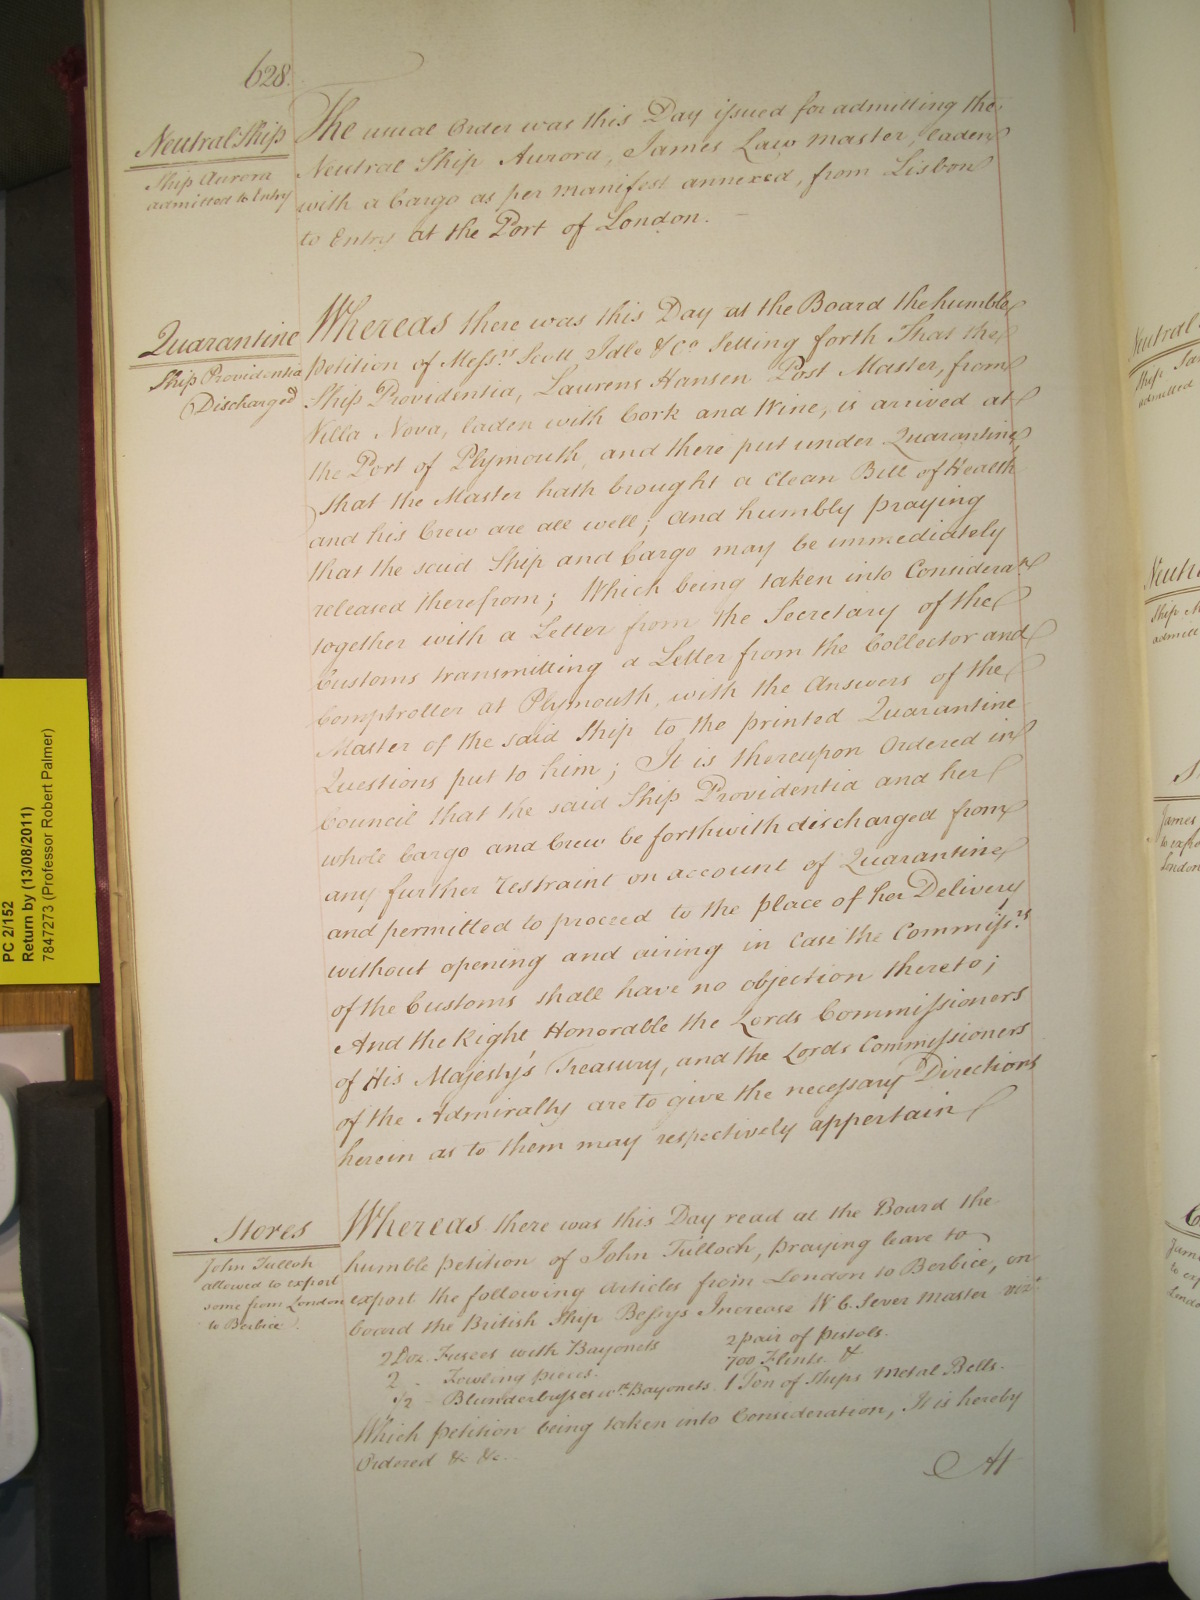 628.
Neutral Ship
Ship Aurora
admitted to Entry
The usual Order was this Day issued for admitting the
Neutral Ship Aurora, James Law Master, laden
with a Cargo as per Manifest annexed, from Lisbon
to Entry at the Port of London.
Quarantine
Ship Providentia
Discharged
Whereas there was this Day at the Board the humble
Petition of Messrs. Scott Idle & Co Setting forth That the
Ship Providentia, Laurens Hansen Post Master, from
Villa Nova, laden with Cork and Wine, is arrived at
the Port of Plymouth, and there put under Quarantine,
that the Master hath brought a Clean Bill of Health
and his Crew are all well; and humbly praying
that the said Ship and Cargo may be immediately
released therefrom; Which being taken into Considera.on
together with a Letter from the Secretary of the
Customs transmitting a Letter from the Collector and
Comptroller at Plymouth, with the Answers of the
Master of the said Ship to the printed Quarantine
Questions put to him; It is thereupon Ordered in
Council that the said Ship Providentia and her
whole Cargo and Crew be forthwith discharged from
any further restraint on account of Quarantine
and permitted to proceed to the place of her Delivery
without opening and airing in Case the Commiss.rs
of the Customs shall have no objection thereto;
And the Right Honorable the Lords Commissioners
of His Majesty's Treasury, and the Lords Commissioners
of the Admiralty are to give the necessary Directions
herein as to them may respectively appertain
Stores
John Tulloh
allowed to export
some from London
to Berbice.
Whereas there was this Day read at the Board the
humble petition of John Tulloch, praying leave to
export the following Articles from London to Berbice, on
board the British Ship Betsys Increase W. C. Sever Master vizt
2 Doz. Fusees with Bayonets 2 pair of Pistols.
2 - Fowling pieces. 700 Flints &
1/2 - Blunderbusses wth Bayonets. 1 Ton of Ships Metal Bells.
Which petition being taken into Consideration, It is hereby
Ordered &c &c.
At
PC 2/152
Return by (13/08/2011)
7847273 (Professor Robert Palmer)
Neutral
Ship
admitted
Ship
James
London
to
London